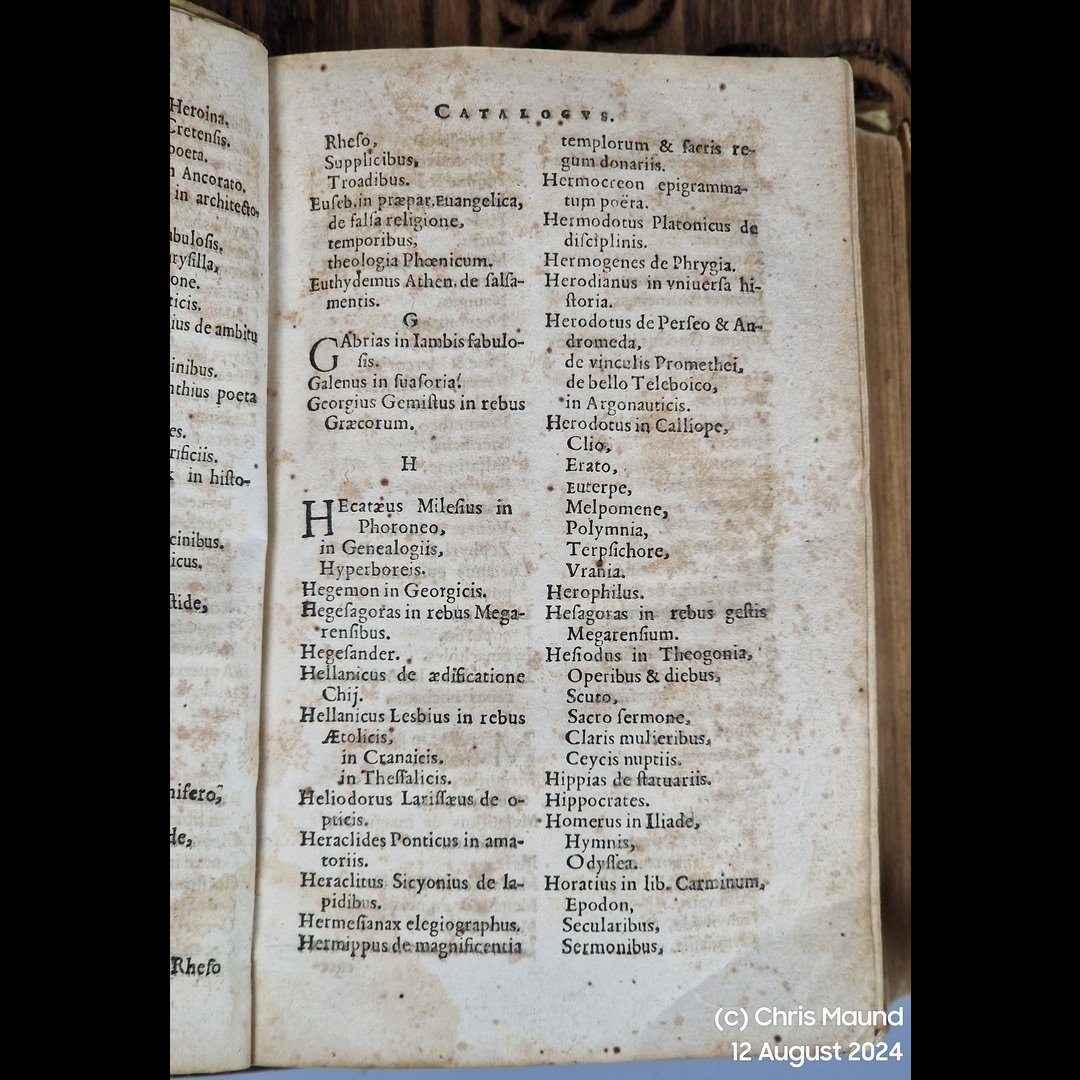 Heroina,
Cretensis.
poeta.
Ancorato.
in architecto-
abulosis,
rysilla,
one.
ticis.
ius de ambitu
inibus.
nthius poeta
es.
rificiis.
in histo-
cinibus.
icus.
stide,
nifero,
de,
Rheso
CATALOGVS.
Rheso,
Supplicibus,
Troadibus.
Euseb. in præpar. Euangelica,
de falsa religione,
temporibus,
theologia Phœnicum.
Euthydemus Athen. de salsa-
mentis.
G
GAbrias in Iambis fabulo-
sis.
Galenus in suasoria.
Georgius Gemistus in rebus
Græcorum.
H
HEcatæus Milesius in
Phoroneo,
in Genealogiis,
Hyperboreis.
Hegemon in Georgicis.
Hegesagoras in rebus Mega-
rensibus.
Hegesander.
Hellanicus de ædificatione
Chij.
Hellanicus Lesbius in rebus
Ætolicis,
in Cranaicis.
in Thessalicis.
Heliodorus Larissæus de o-
pticis.
Heraclides Ponticus in ama-
toriis.
Heraclitus Sicyonius de la-
pidibus.
Hermesianax elegiographus.
Hermippus de magnificentia
templorum & sacris re-
gum donariis.
Hermocreon epigramma-
tum poëta.
Hermodotus Platonicus de
disciplinis.
Hermogenes de Phrygia.
Herodianus in vniuersa hi-
storia.
Herodotus de Perseo & An-
dromeda,
de vinculis Promethei,
de bello Teleboico,
in Argonauticis.
Herodotus in Calliope,
Clio,
Erato,
Euterpe,
Melpomene,
Polymnia,
Terpsichore,
Vrania.
Herophilus.
Hesagoras in rebus gestis
Megarensium.
Hesiodus in Theogonia,
Operibus & diebus,
Scuto,
Sacro sermone,
Claris mulieribus,
Ceycis nuptiis.
Hippias de statuariis.
Hippocrates.
Homerus in Iliade,
Hymnis,
Odyssea.
Horatius in lib. Carminum,
Epodon,
Secularibus,
Sermonibus,
(c) Chris Maund
12 August 2024